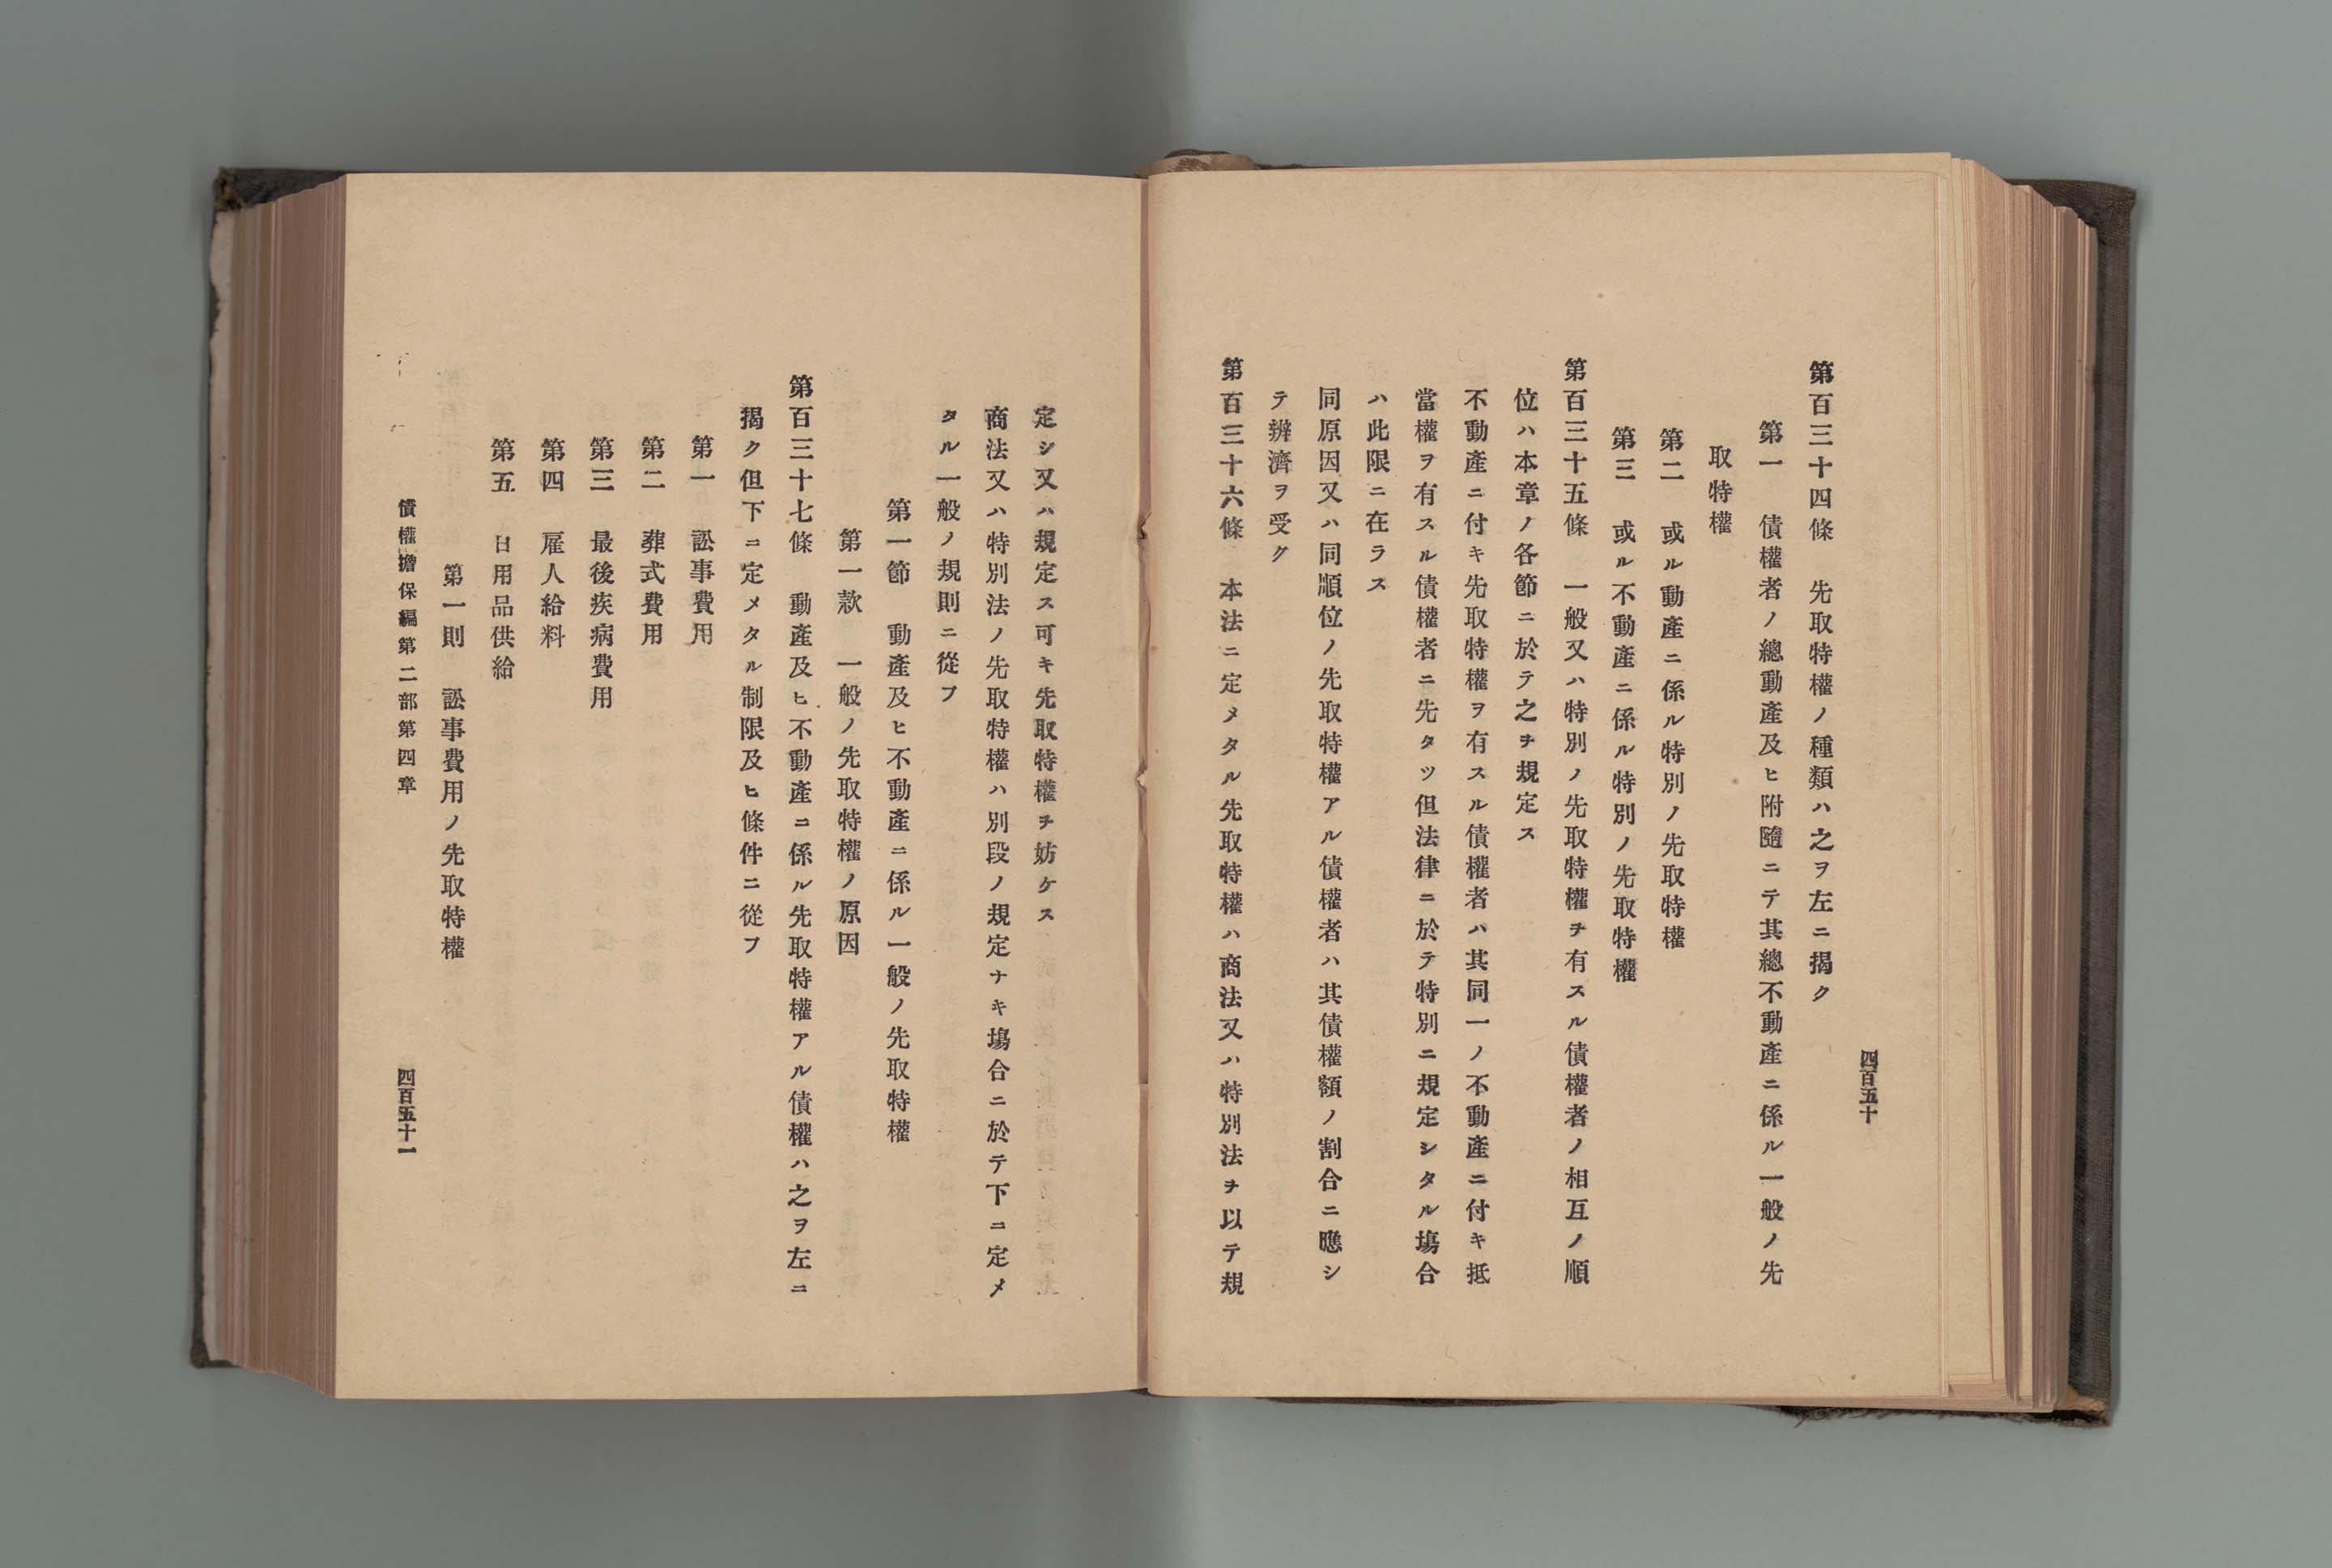 四百五十
第百三十四條　先取特權ノ種類ハ之ヲ左ニ揭ク
第一　債權者ノ總動產及ヒ附隨ニテ其總不動產ニ係ル一般ノ先
取特權
第二　或ル動產ニ係ル特別ノ先取特權
第三　或ル不動產ニ係ル特別ノ先取特權
第百三十五條　一般又ハ特別ノ先取特權ヲ有スル債權者ノ相互ノ順
位ハ本章ノ各節ニ於テ之ヲ規定ス
不動產ニ付キ先取特權ヲ有スル債權者ハ其同一ノ不動產ニ付キ抵
當權ヲ有スル債權者ニ先タツ但法律ニ於テ特別ニ規定シタル塲合
ハ此限ニ在ラス
同原因又ハ同順位ノ先取特權アル債權者ハ其債權額ノ割合ニ應シ
テ辨濟ヲ受ク
第百三十六條　本法ニ定メタル先取特權ハ商法又ハ特別法ヲ以テ規
定シ又ハ規定ス可キ先取特權ヲ妨ケス
商法又ハ特別法ノ先取特權ハ別段ノ規定ナキ塲合ニ於テ下ニ定メ
タル一般ノ規則ニ從フ
第一節　動產及ヒ不動產ニ係ル一般ノ先取特權
第一款　一般ノ先取特權ノ原因
第百三十七條　動產及ヒ不動產ニ係ル先取特權アル債權ハ之ヲ左ニ
揭ク但下ニ定メタル制限及ヒ條件ニ從フ
第一　訟事費用
第二　葬式費用
第三　最後疾病費用
第四　雇人給料
第五　日用品供給
第一則　訟事費用ノ先取特權
債權擔保編第二部第四章
四百五十一